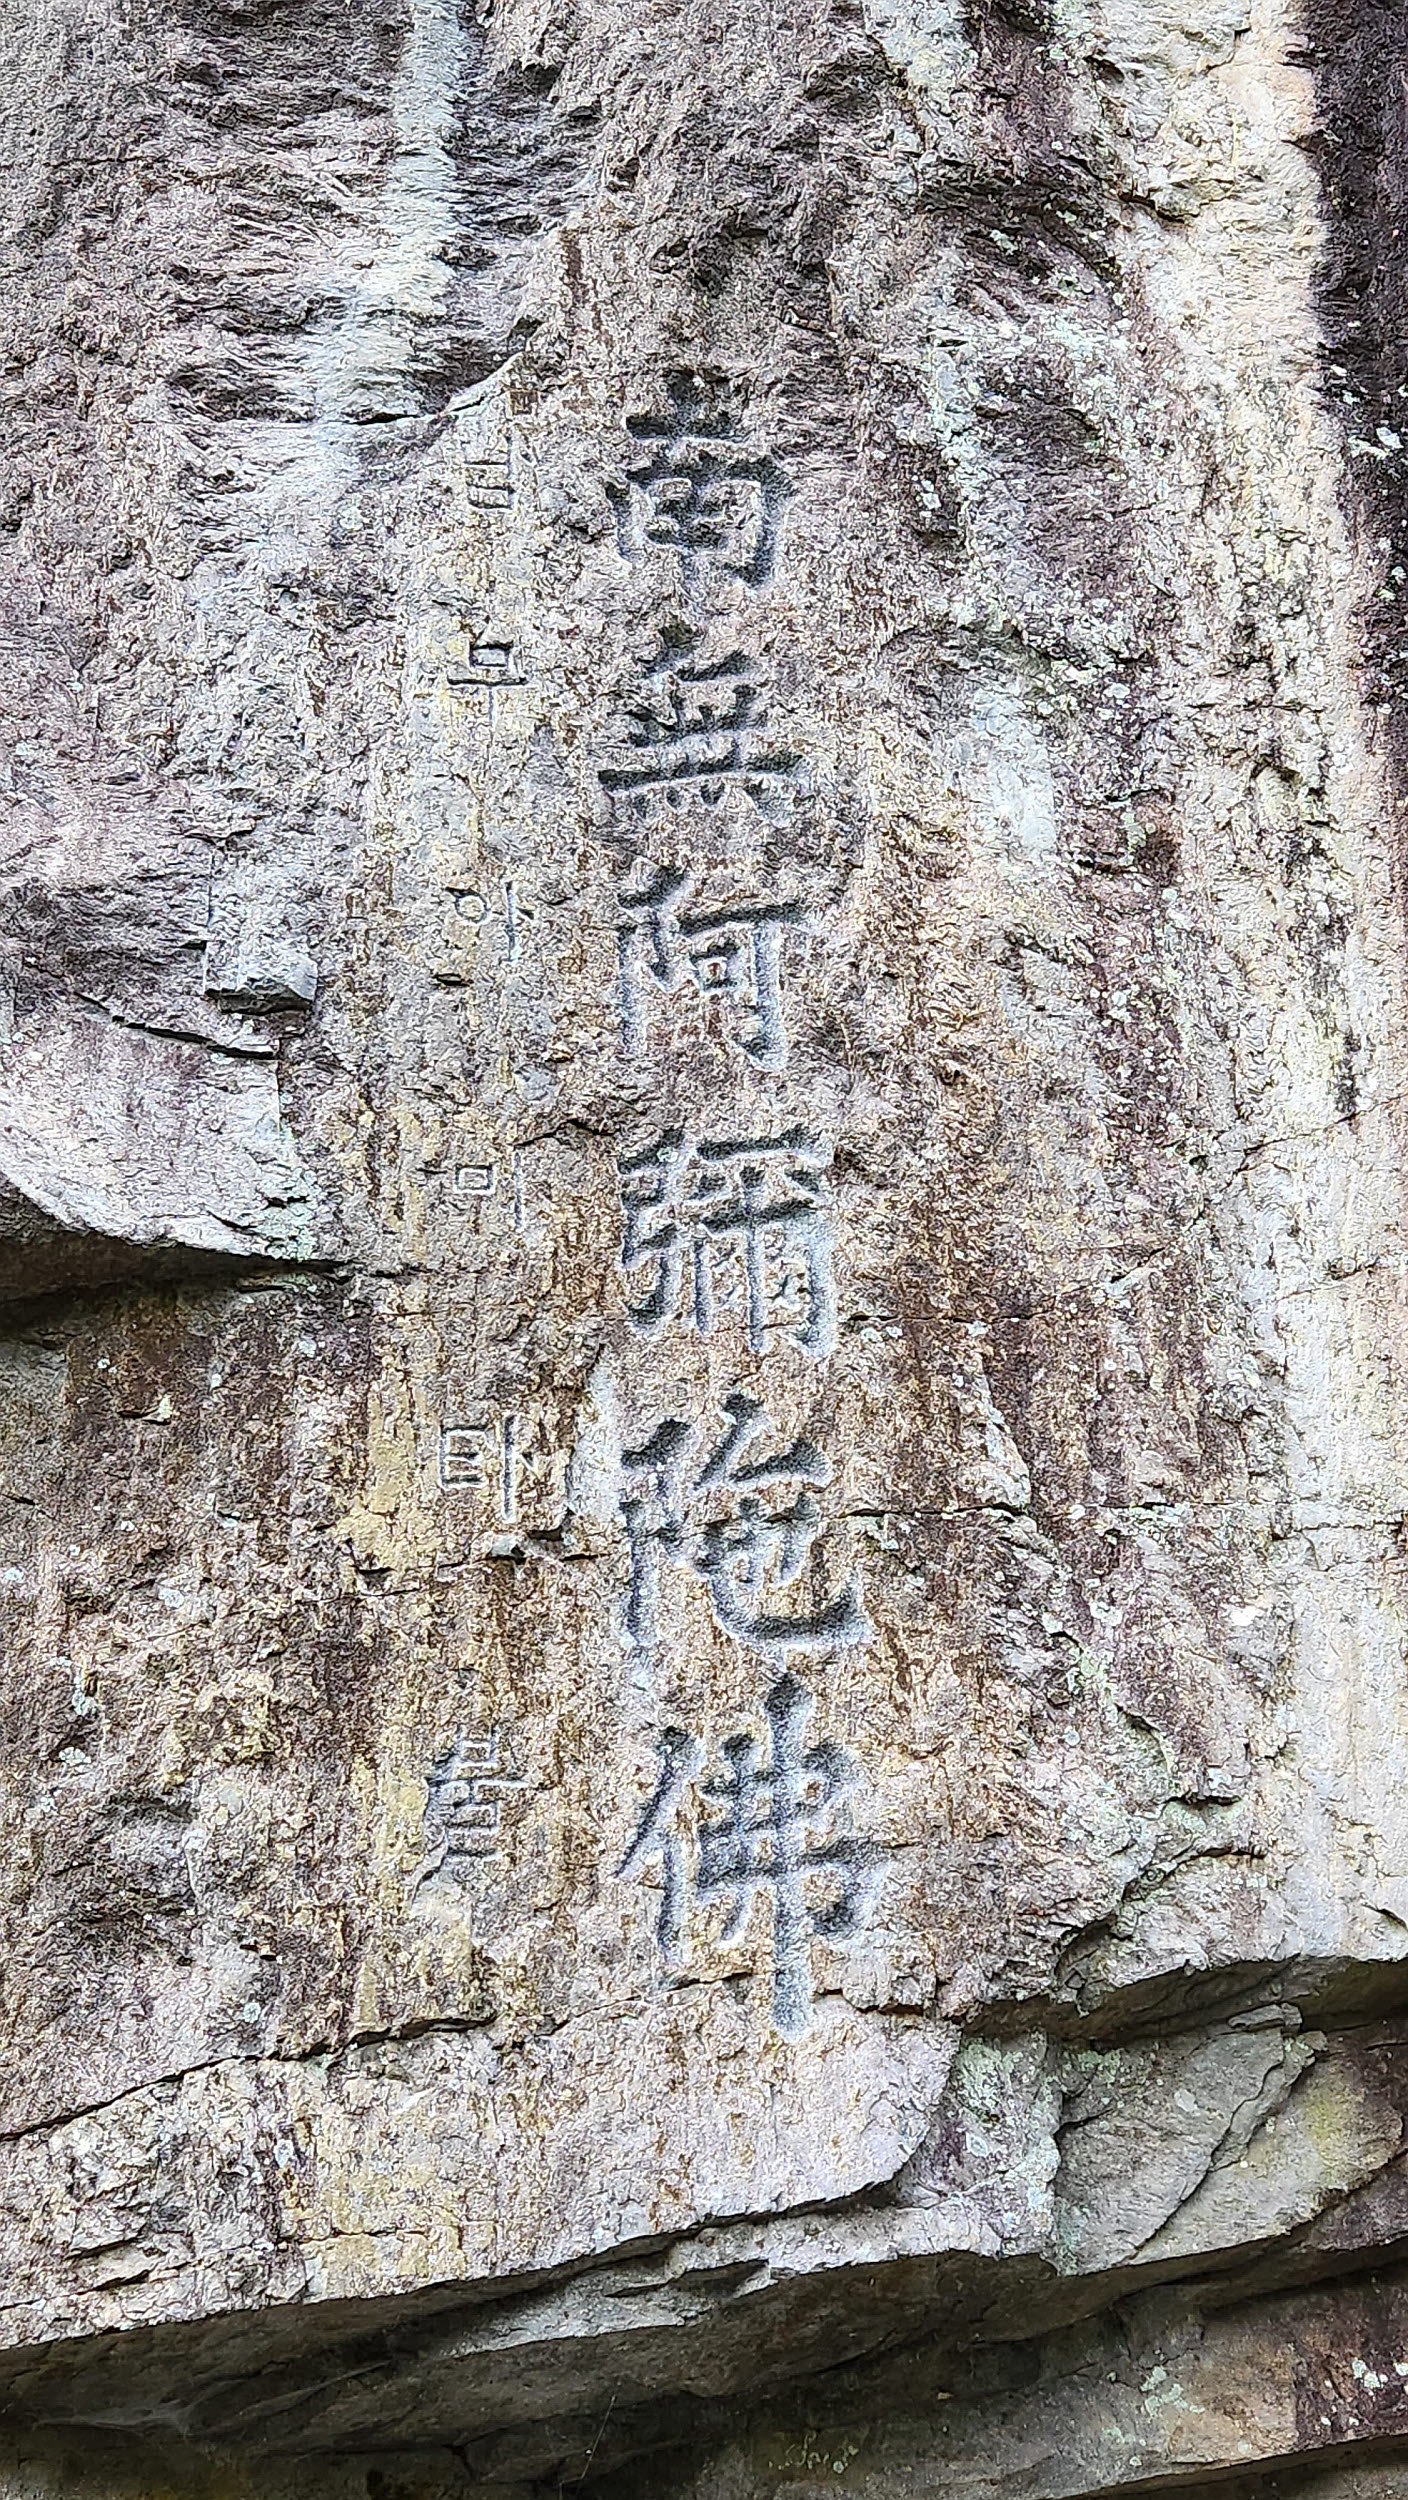 南無阿彌陁佛
남무아미타불